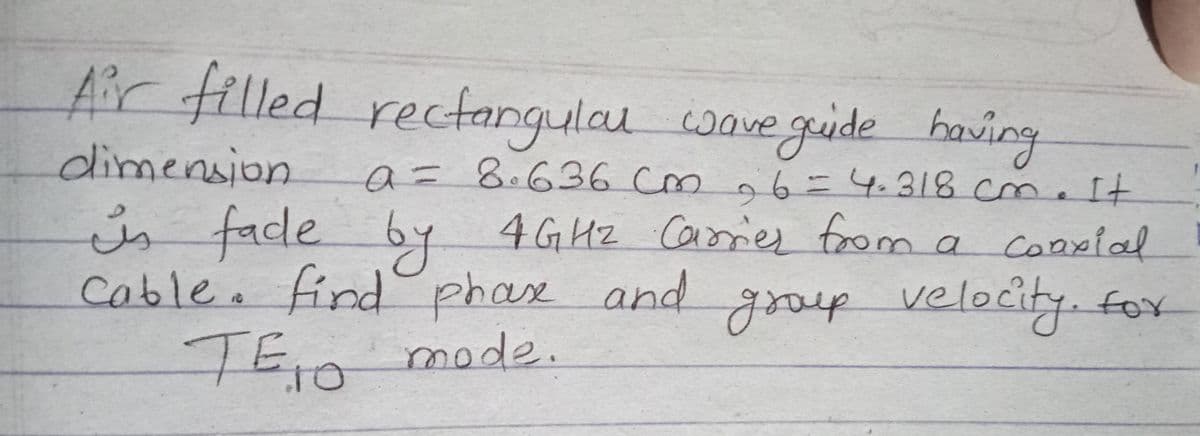 Air filled rectangular wave guide having
dimension a = 8.636 cm , b = 4.318 cm. It
is fade by 4 GHz Carrier from a coaxial
Cable. find phase and group velocity. for
TE10 mode.